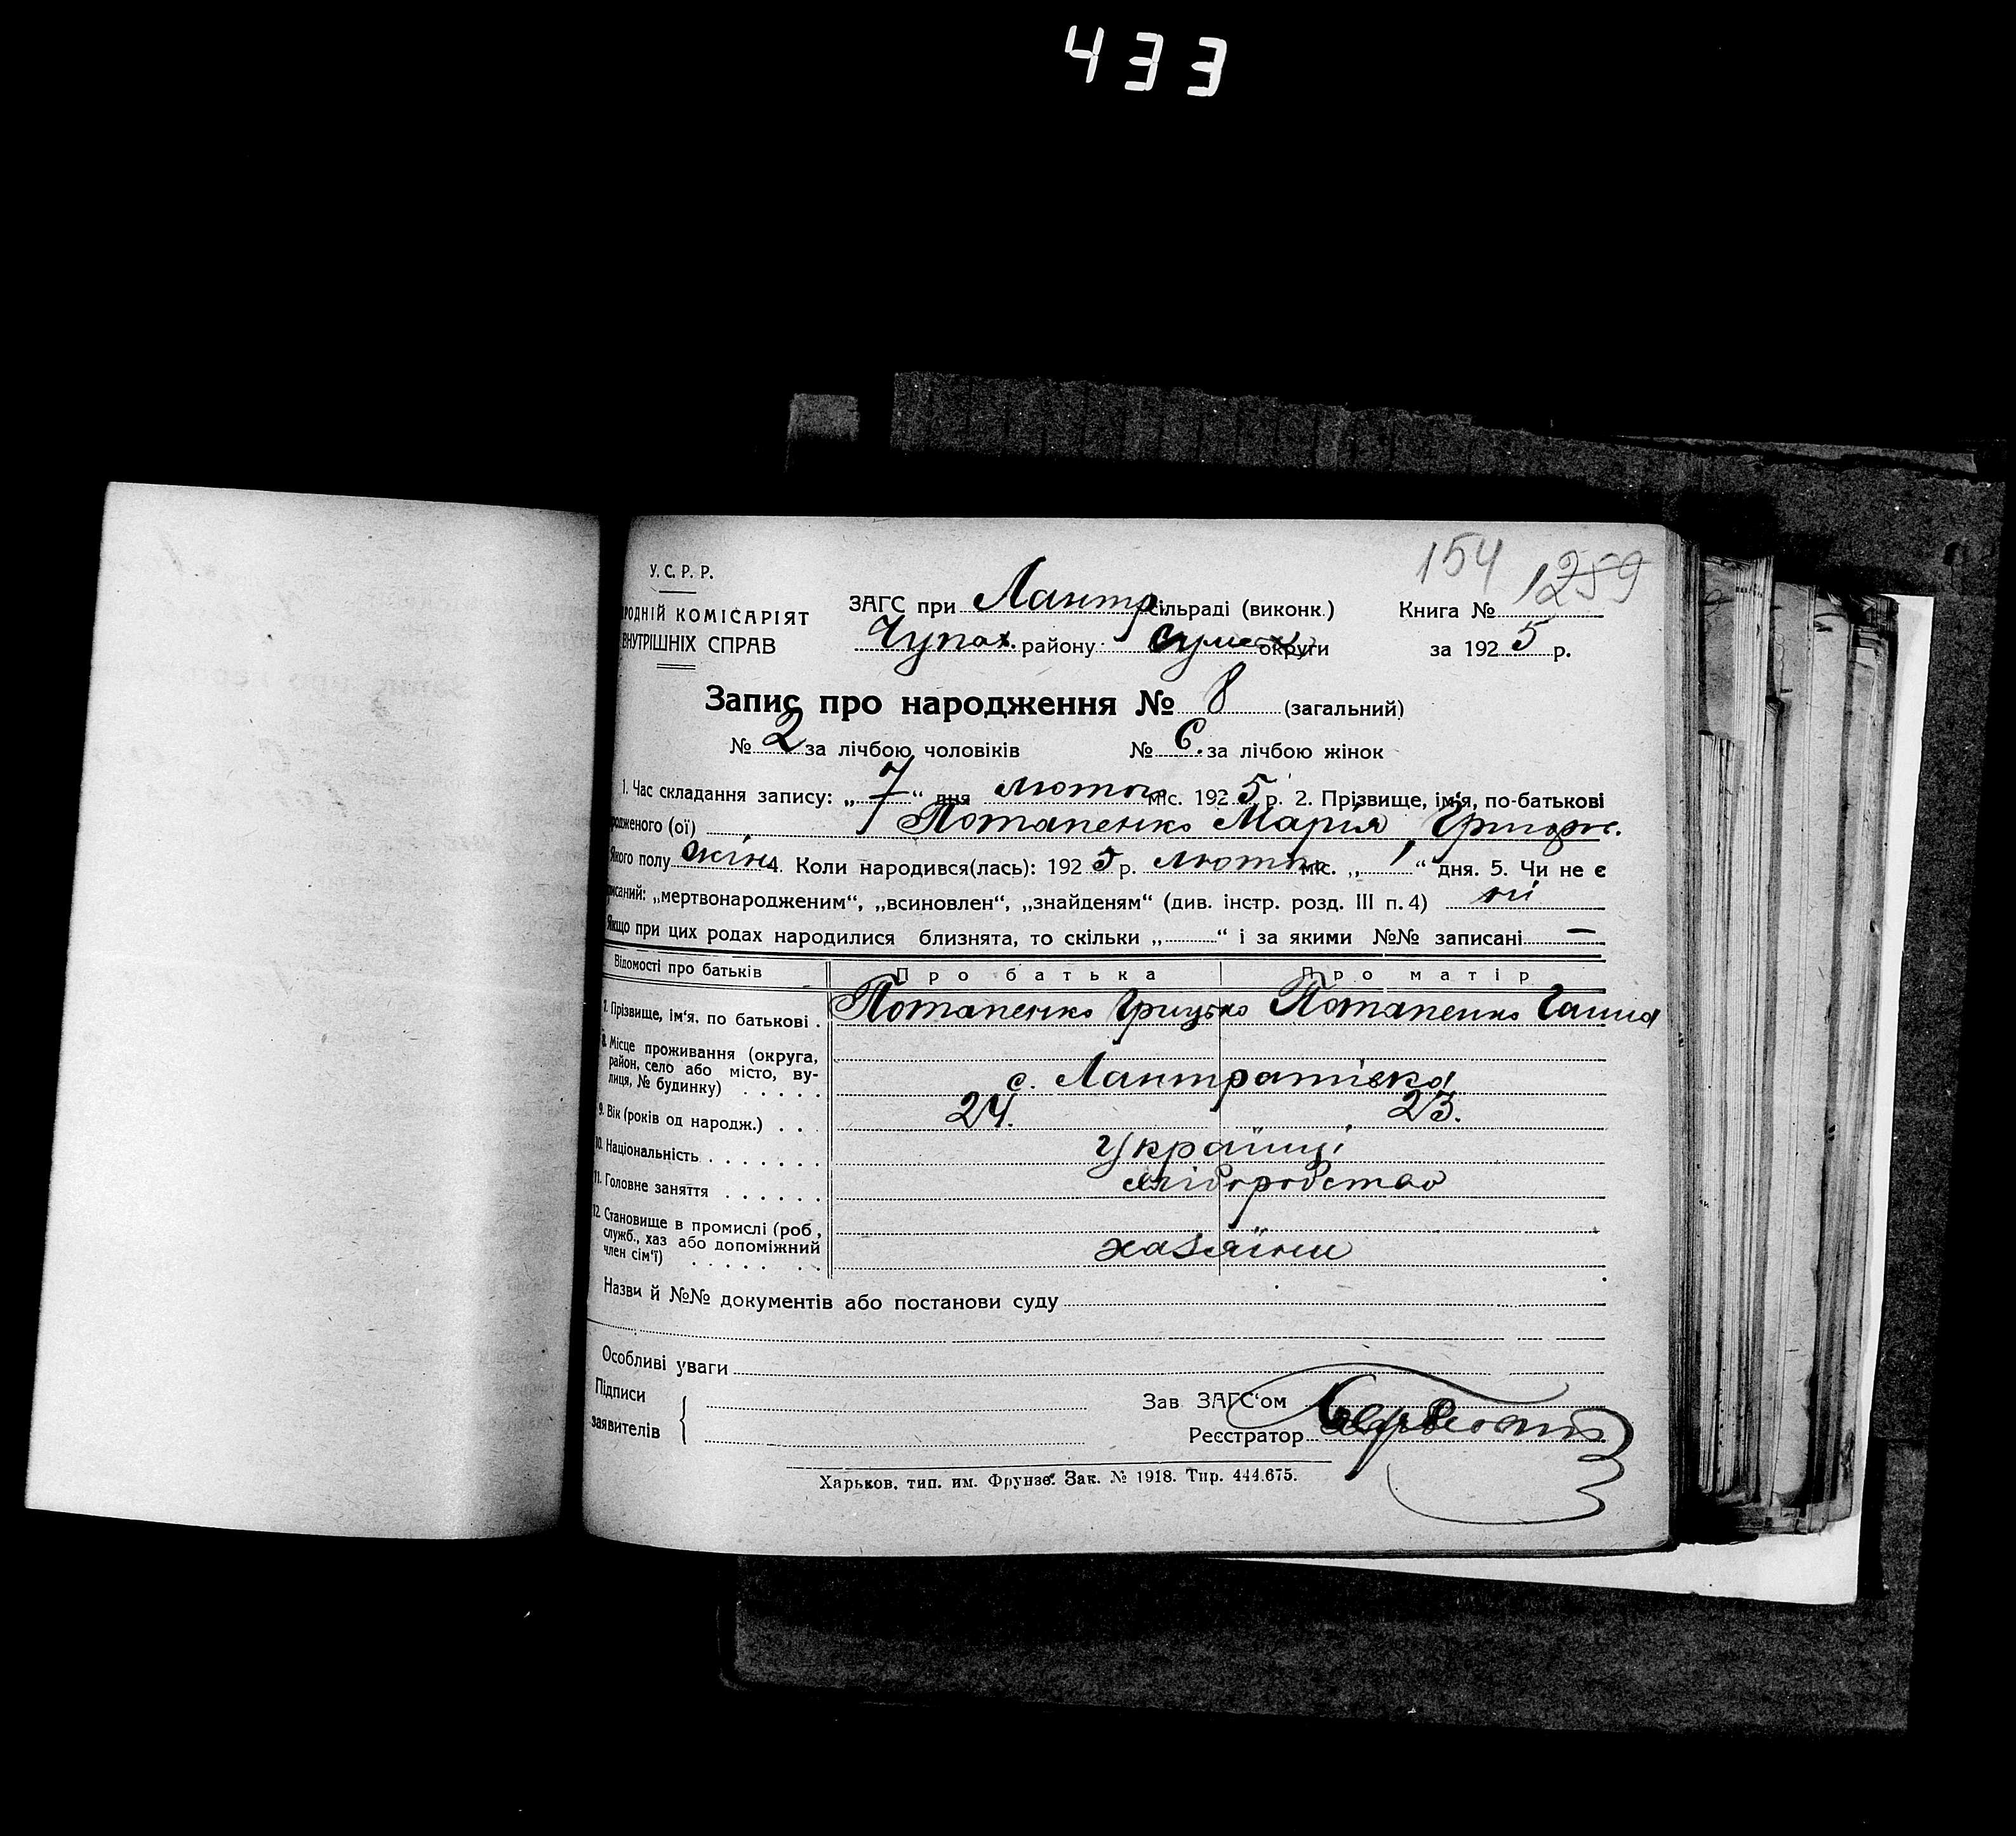 433
154 1259
У. С. Р. Р.
РОДНІЙ КОМІСАРІЯТ
ВНУТРІШНІХ СПРАВ
ЗАГС при Лантр. сільраді (виконк.) Книга №
Чупах. району Сумск округи за 1925 р.
Запис про народження № 8 (загальний)
№ 2 за лічбою чоловіків № 6. за лічбою жінок
1. Час складання запису: „7“ дня лютого міс. 1925 р. 2. Прізвище, ім‘я, по-батькові
родженого (ої) Потапенко Марія Григор.
Якого полу жін. 4. Коли народився(лась): 1925 р. лютого міс. „1“ дня. 5. Чи не є
писаний: „мертвонародженим“, „всиновлен“, „знайденям“ (див. інстр. розд. III п. 4) ні
Якщо при цих родах народилися близнята, то скільки „ “ і за якими №№ записані —
Відомості про батьків Про батька Про матір
7. Прізвище, ім‘я. по батькові . Потапенко Грицько Потапенко Ганна
8. Місце проживання (округа,
район, село або місто, ву-
лиця, № будинку) . . . . . с. Лантратівка
9. Вік (років од народж.) . . . 24. 23.
10. Національність . . . . . . . Українці
11. Головне заняття . . . . . . хліборобство
12. Становище в промислі (роб.,
служб., хаз або допоміжний
член сім‘ї) . . . . . . . хазяїни
Назви й №№ документів або постанови суду
Особливі уваги
Підписи
заявителів
Зав ЗАГС‘ом
Реєстратор
Харьков. тип. им. Фрунзе. Зак. № 1918. Тир. 444.675.